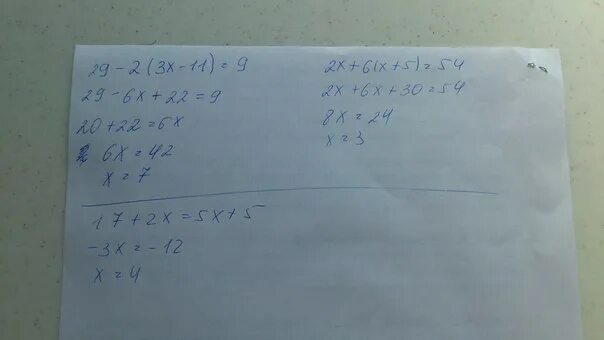 29 - 2(3x - 11) = 9
29 - 6x + 22 = 9
20 + 22 = 6x
6x = 42
x = 7
2x + 6(x + 5) = 54
2x + 6x + 30 = 54
8x = 24
x = 3
17 + 2x = 5x + 5
-3x = -12
x = 4